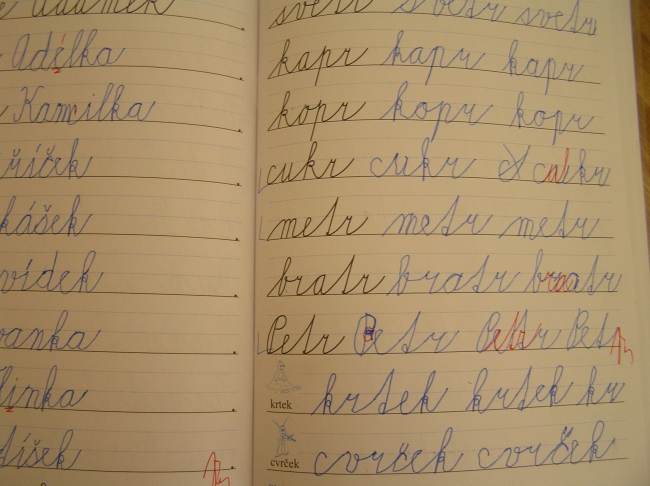 Adámek
Adélka
Kamilka
říček
kášek
vídek
vanka
linka
tíšek
svetr svetr svetr
kapr kapr kapr
kopr kopr kopr
cukr cukr cukr
metr metr metr
bratr bratr bratr
Petr Petr Petr Petr
krtek krtek krtek kr
cvrček cvrček cvrček